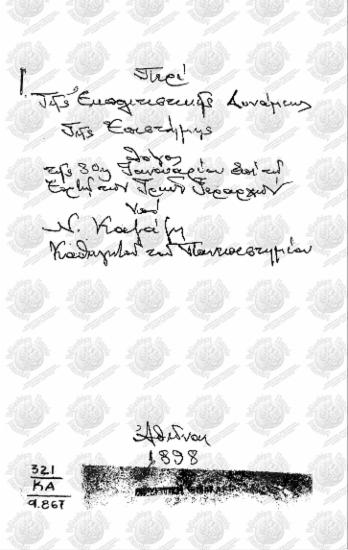 Περί
Τῆς Εκπολιτιστικῆς Δυνάμεως
Τῆς Επιστήμης
Λόγος
τῆς 30ῃ Ιανουαρίου ἐπὶ τῇ
Ἑορτῇ τῶν Τριῶν Ιεραρχῶν
Υπό
Ν. Καζάζη
Καθηγητοῦ τοῦ Πανεπιστημίου
Ἀθῆναι
1898
321
ΚΑ
9.867